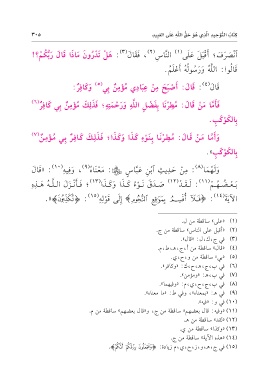 كتاب التوحيد الذي هو حق الله على العبيد ٣٠٥
انْصَرَفَ؛ أَقْبَلَ عَلَى(١) النَّاسِ(٢)، فَقَالَ(٣): هَلْ تَدْرُونَ مَاذَا قَالَ رَبُّكُمْ؟!
قَالُوا: اللَّهُ وَرَسُولُهُ أَعْلَمُ.
قَالَ(٤): قَالَ: أَصْبَحَ مِنْ عِبَادِي مُؤْمِنٌ بِي(٥) وَكَافِرٌ:
فَأَمَّا مَنْ قَالَ: مُطِرْنَا بِفَضْلِ اللَّهِ وَرَحْمَتِهِ؛ فَذَلِكَ مُؤْمِنٌ بِي كَافِرٌ(٦)
بِالكَوْكَبِ.
وَأَمَّا مَنْ قَالَ: مُطِرْنَا بِنَوْءِ كَذَا وَكَذَا؛ فَذَلِكَ كَافِرٌ بِي مُؤْمِنٌ(٧)
بِالكَوْكَبِ».
وَلَهُمَا(٨): مِنْ حَدِيثِ ابْنِ عَبَّاسٍ ﵄: مَعْنَاهُ(٩)، وَفِيهِ(١٠): «قَالَ
بَعْضُهُمْ(١١): لَقَدْ(١٢) صَدَقَ نَوْءُ كَذَا وَكَذَا(١٣)؛ فَأَنْزَلَ اللَّهُ هَذِهِ
الآيَةَ(١٤): ﴿فَلَا أُقْسِمُ بِمَوَاقِعِ النُّجُومِ﴾ إِلَى قَوْلِهِ(١٥): ﴿تُكَذِّبُونَ﴾».
(١) «على» ساقطة من ل.
(٢) «أقبل على الناس» ساقطة من ج.
(٣) في ج،ك،ل: «قال».
(٤) «قال» ساقطة من أ،ج،هـ،ط،م.
(٥) «بي» ساقطة من و،ح،ي.
(٦) في ب،ج،هـ،ح،ك: «وكافر».
(٧) في ب،هـ: «ومؤمن».
(٨) في ب،ج،ح،ي،م: «وفيهما».
(٩) في هـ: «بمعناه»، وفي ط: «ما معناه».
(١٠) في و: «فيه».
(١١) «وفيه: قال بعضهم» ساقطة من ج، و«قال بعضهم» ساقطة من م.
(١٢) «لقد» ساقطة من هـ.
(١٣) «وكذا» ساقطة من ي.
(١٤) «هذه الآية» ساقطة من ج.